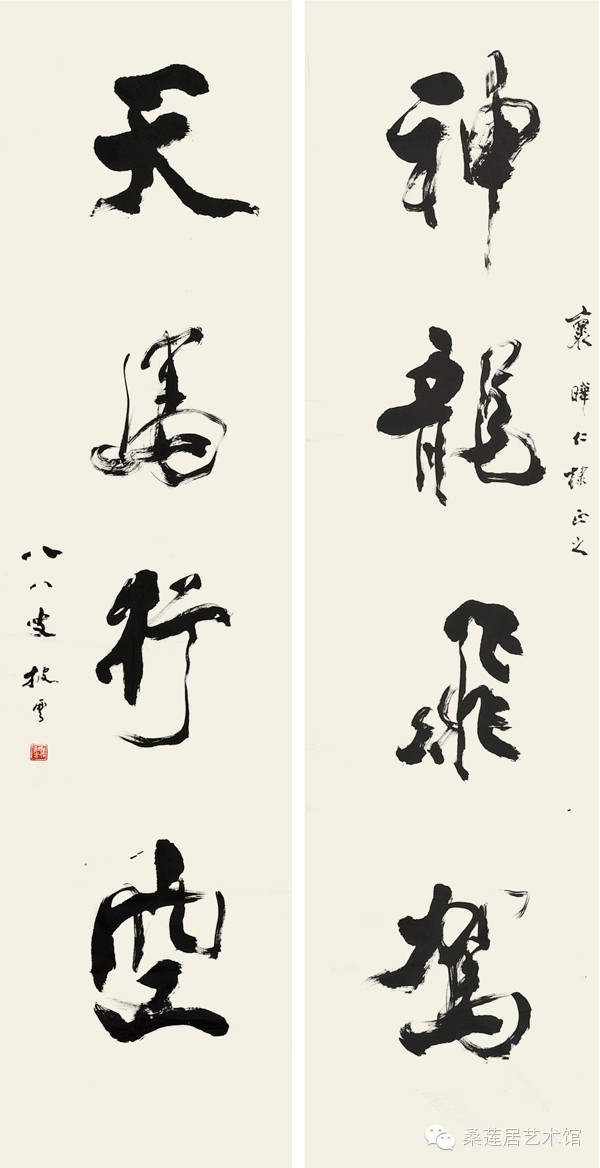 神龍飛駕
仁棣正之
天馬行空
八八叟披雲
桑莲居艺术馆